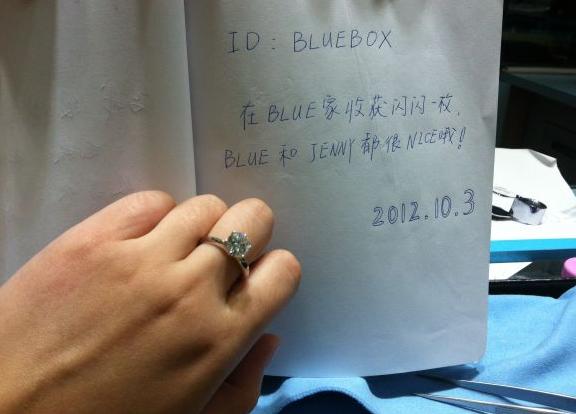 ID : BLUEBOX
在BLUE家收获闪闪一枚.
BLUE 和 JENNY 都很NICE哦!
2012.10.3